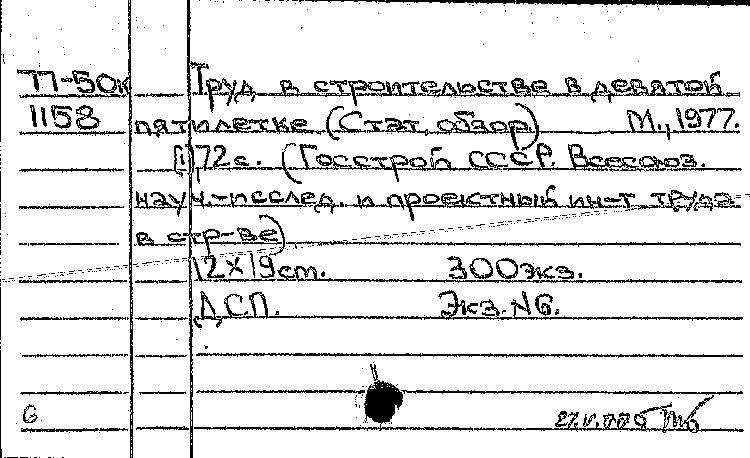 П-50к Труд в строительстве в девятой
1158 пятилетке (Стат. обзор) М., 1977.
[1], 72 с. (Госстрой СССР. Всесоюз.
науч.-исслед. и проектный ин-т труда
в стр-ве)
12х19 cm. 300 экз.
ДСП. Экз. №6.
6